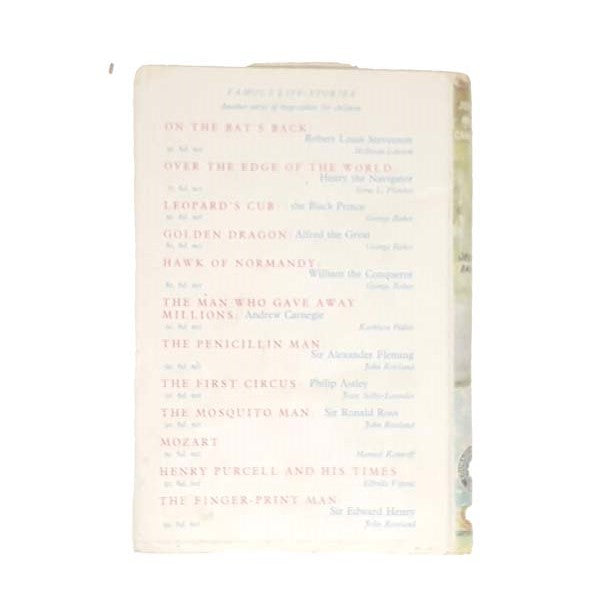 FAMOUS LIFE-STORIES
Another series of biographies for children
ON THE BAT'S BACK:
Robert Louis Stevenson
9s. 6d. net
OVER THE EDGE OF THE WORLD
Henry the Navigator
6d. net
LEOPARD'S CUB: the Black Prince
6d. net George Baker
GOLDEN DRAGON: Alfred the Great
8s. 6d. net George Baker
HAWK OF NORMANDY:
William the Conqueror
8s. 6d. net George Baker
THE MAN WHO GAVE AWAY
MILLIONS: Andrew Carnegie
9s. 6d. net Kathleen
THE PENICILLIN MAN
Sir Alexander Fleming
9s. 6d. net John Rowland
THE FIRST CIRCUS: Philip Astley
9s. 6d. net
THE MOSQUITO MAN: Sir Ronald Ross
9s. 6d. net John Rowland
MOZART
9s. 6d. net Manuel Komroff
HENRY PURCELL AND HIS TIMES
9s. 6d. net Elfrida Vipont
THE FINGER-PRINT MAN:
Sir Edward Henry
9s. 6d. net John Rowland